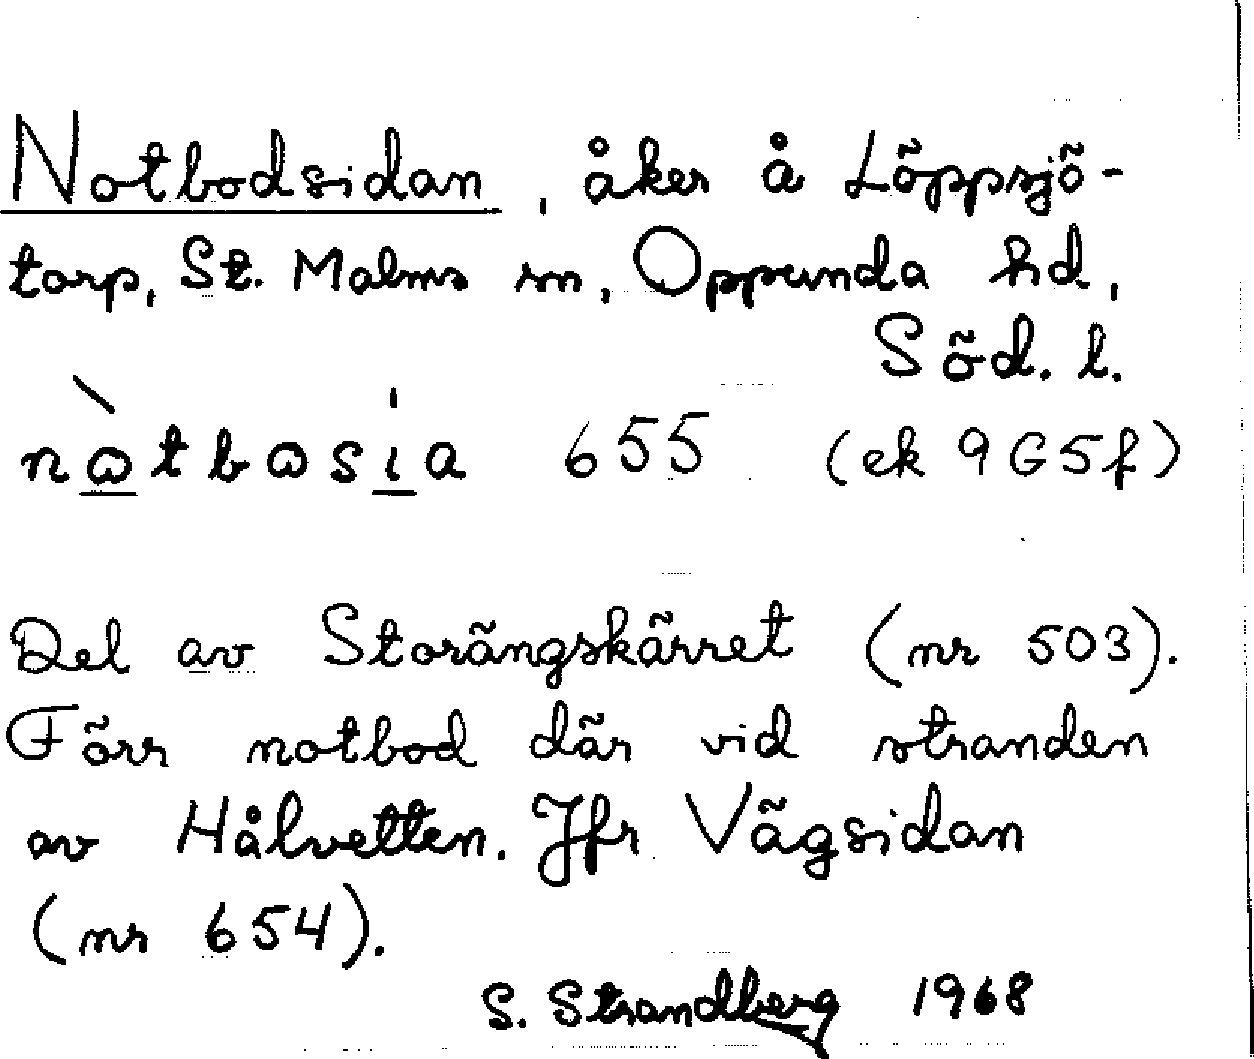 Notbodsidan, åker å Löppsjö-
torp, St. Malms sn, Oppunda hd,
Söd. l.
nòtbɷsia 655 (ek 9G5f)
Del av Storängskärret (nr 503).
Förr notbod där vid stranden
av Hålvetten. Jfr Vägsidan
(nr 654).
S. Strandberg 1968